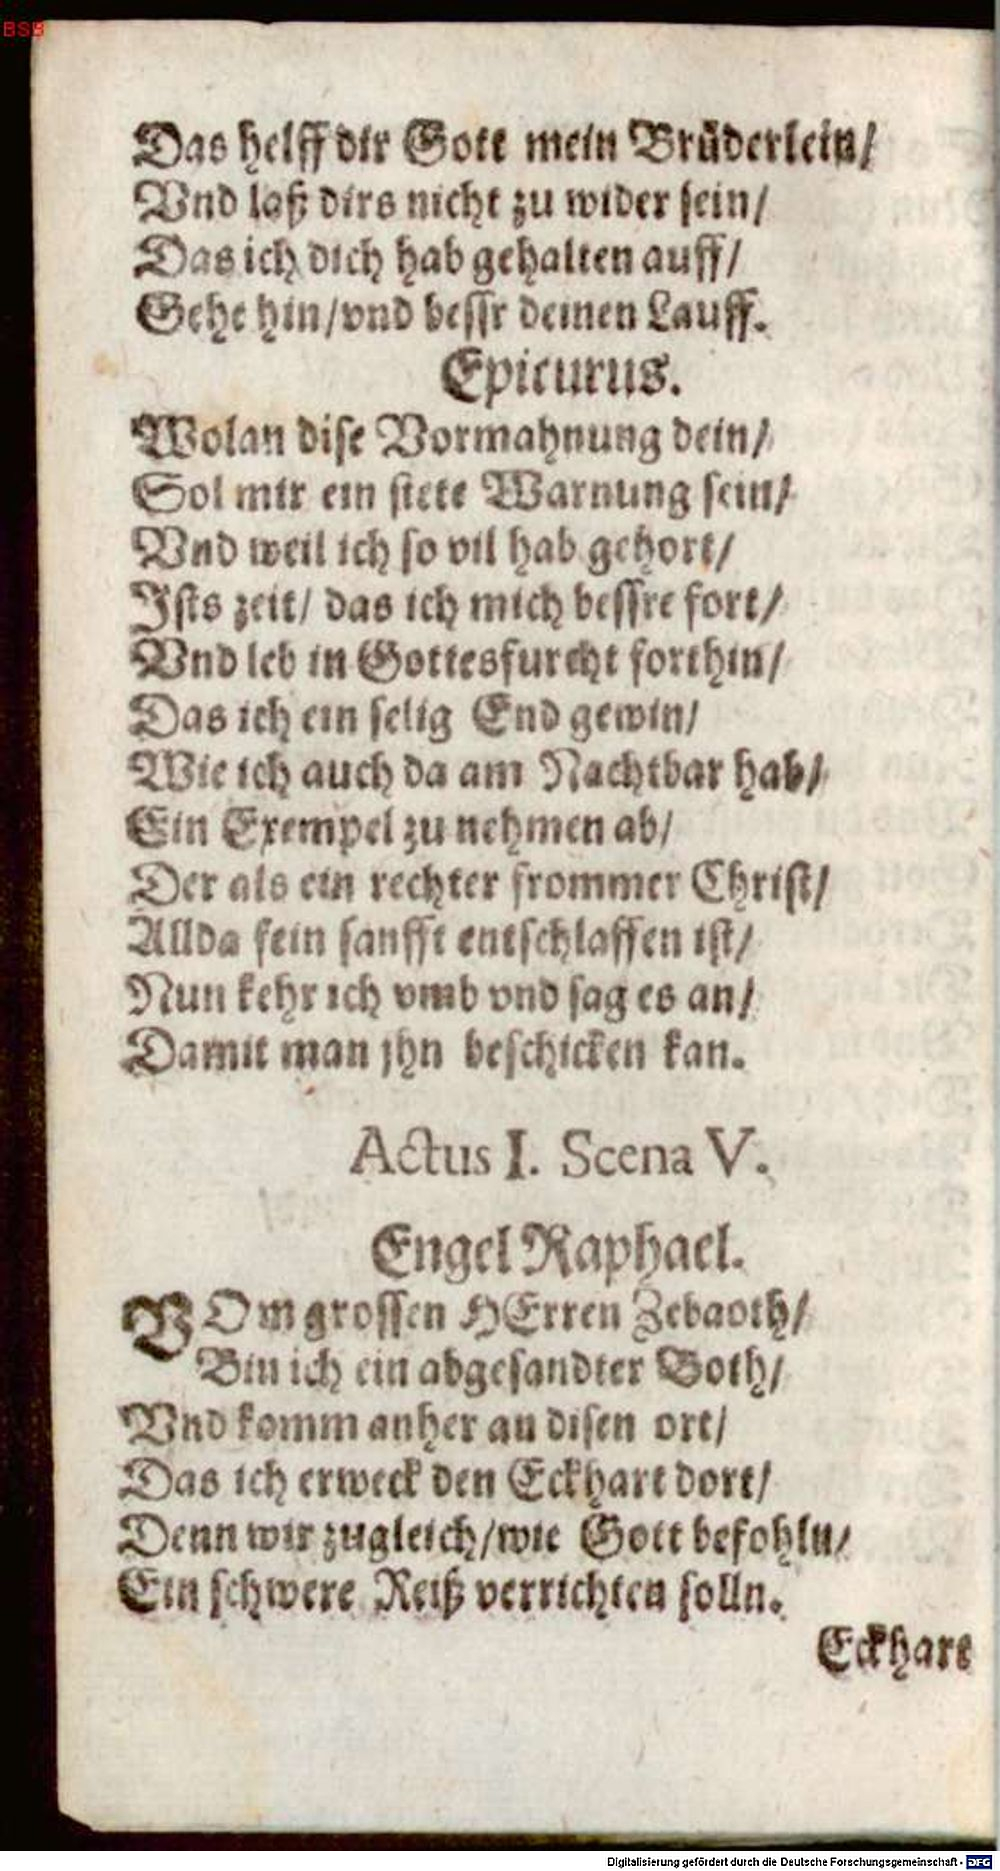 BSB
Das helff dir Gott mein Brüderlein/
Vnd laß dirs nicht zu wider sein/
Das ich dich hab gehalten auff/
Gehe hin/vnd bessr deinen Lauff.
Epicurus.
Wolan dise Vormahnung dein/
Sol mir ein stete Warnung sein/
Vnd weil ich so vil hab gehort/
Ists zeit/ das ich mich bessre fort/
Vnd leb in Gottesfurcht forthin/
Das ich ein selig End gewin/
Wie ich auch da am Nachtbar hab/
Ein Exempel zu nehmen ab/
Der als ein rechter frommer Christ/
Allda fein sanfft entschlaffen ist/
Nun kehr ich vmb vnd sag es an/
Damit man jhn beschicken kan.
Actus I. Scena V.
Engel Raphael.
VOm grossen HErren Zebaoth/
Bin ich ein abgesandter Both/
Vnd komm anher an disen ort/
Das ich erweck den Eckhart dort/
Denn wir zugleich/wie Gott befohln/
Ein schwere Reiß verrichten solln.
Eckhart
Digitalisierung gefördert durch die Deutsche Forschungsgemeinschaft - DFG